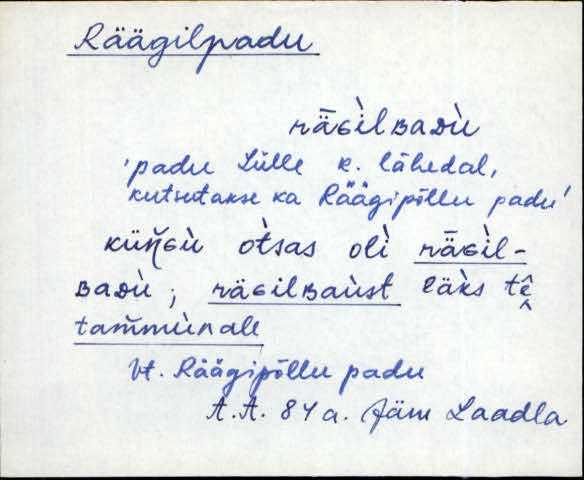 Räägilpadu
rāɢìlʙaᴅù
'padu Lülle k. lähedal,
kutsutakse ka Räägipõllu padu'
küŋ̆ɢù òtsas olì rāɢìl-
ʙaᴅù; rāɢilʙaùst läks tê
tam̆mùnale
Vt. Räägipõllu padu
A.A. 84 a. Jäm Laadla